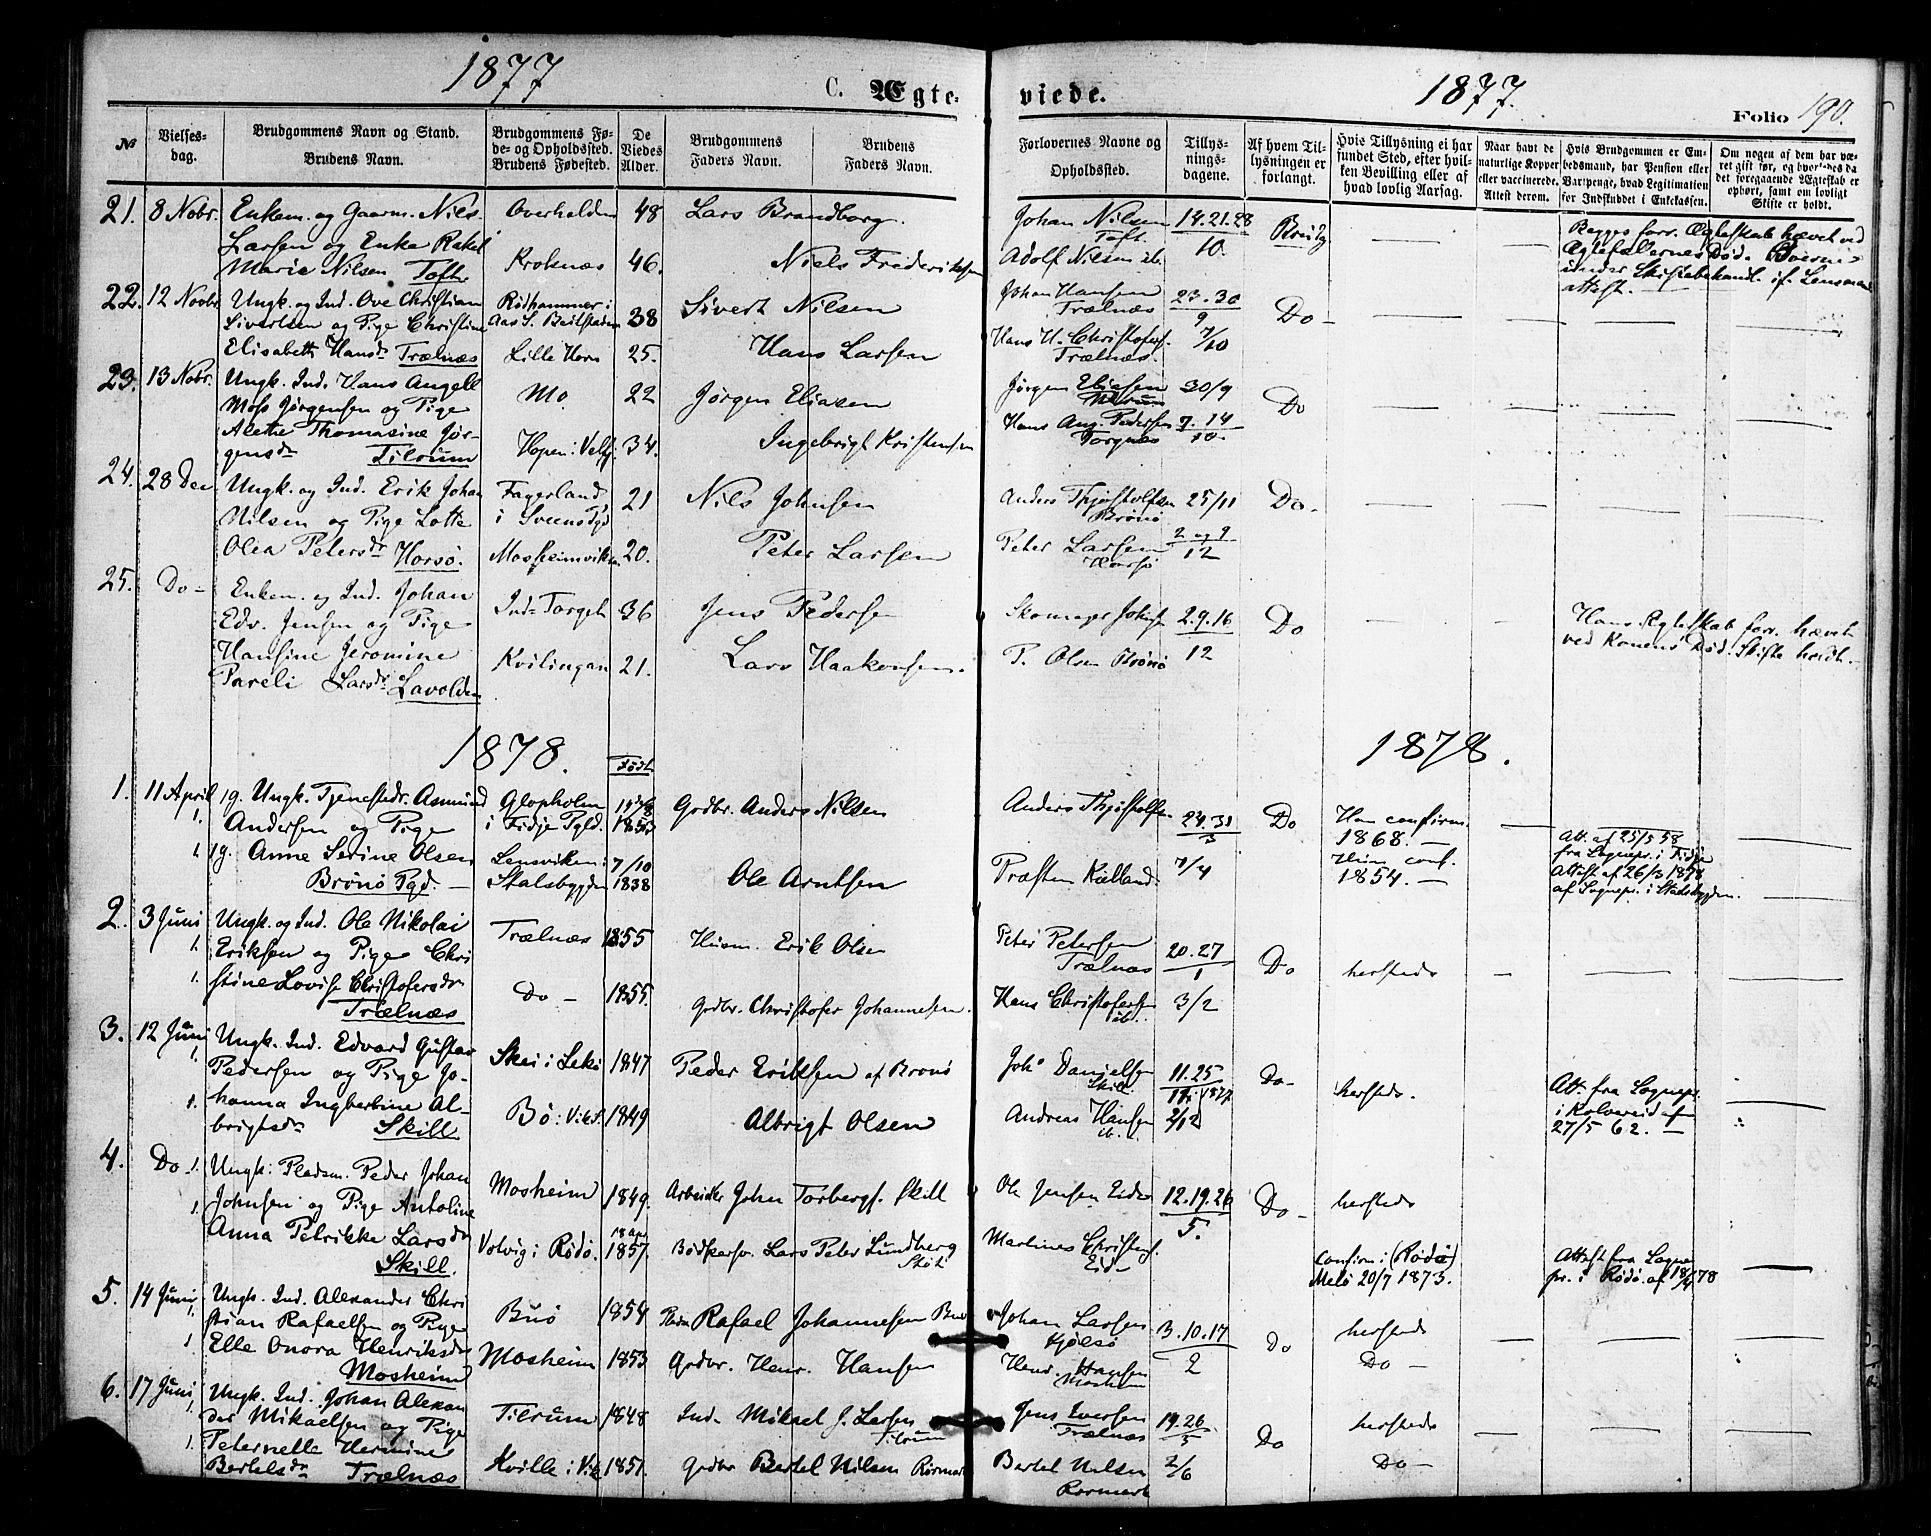 1877
C. Ægte-
viede.
1877.
Folio 190.
№
Vielses-
dag.
Brudgommens Navn og Stand.
Brudens Navn.
Brudgommens Fø-
de- og Opholdssted.
Brudens Fødested.
De
Viedes
Alder.
Brudgommens
Faders Navn.
Brudens
Faders Navn.
Forlovernes Navne og
Opholdssted.
Tillys-
nings-
dagene.
Af hvem Til-
lysningen er
forlangt.
Hvis Tillysning ei har
fundet Sted, efter hvil-
ken Bevilling eller af
hvad lovlig Aarsag.
Naar havt de
naturlige Kopper
eller vaccinerede.
Attest derom.
Hvis Brudgommen er Em-
bedsmand, har Pension eller
Vartpenge, hvad Legitimation
for Indskuddet i Enkekassen.
Om nogen af dem har væ-
ret gift før, og hvorledes da
det foregaaende Ægteskab er
ophørt, samt om lovligt
Skifte er holdt.
21. 8 Nobr. Enkem. og Gaarm. Nils
Larsen og Enke Rakel
Marie Nilsen Toft
Overhalden 48
Kroknæs 46.
Lars Brandborg.
Niels Frederiksen
Johan Nilsen
Toft
Adolf Nilsen ib.
14.21.28
10.
Begges forr. Ægteskab hævet ved
Ægtefællernes Død. Boerne
under Skiftebehandl. if. Lensmand
attest.
22. 12 Novbr. Ungk. og Ind. Ove Christian
Sivertsen og Pige Christine
Elisabeth Hansdr Trælnæs
Rødhammer i
Aas S. Beitstaden 38
Lille Horn 25.
Sivert Nilsen
Hans Larsen
Johan Hansen
Trælnæs
Hans H. Christofers.
Trælnæs.
23.30
9
7/10
Do -
23. 13 Nobr. Ungk. Ind. Hans Angell
Moss Jørgensen og Pige
Alette Thomasine Jør-
gensdr Tilrum
Mo 22
Hopen i Velfj. 34.
Jørgen Eliasen
Ingebrigt Kristensen
Jørgen Eliasen
Tilrum
Hans Ang. Pedersen
Torgnæs
30/9
7.14
10.
Do
24. 28 Dec Ungk. og Ind. Erik Johan
Nilsen og Pige Lotte
Olea Petersdr Horsø.
Fagerland
21
Mosheimviken 20.
Nils Johnsen
Peter Larsen
Anders Thjøstolfsen
Brønø
Peter Larsen
Horsø
25/11
2 og 9
12
Do -
25. Do - Enkem. og Ind. Johan
Edv. Jensen og Pige
Hansine Jeromine
Pareli Larsdr Lavolden
Ind-Torget 36
Kvilingan 21.
Jens Pedersen
Lars Haakonsen.
P. Olsen Brønø
2.9.16
12
Do
Hans Ægteskab forr. hævet
ved Konens Død. Skifte holdt.
1878.
Født.
1878.
1. 11 April 1g. Ungk. Tjenestedr. Asmund
Andersen og Pige
1. 1g. Anne Serine Olsen
Brønø Pgd. -
Glopholm
i Fidje Pgld.
1853
Lensviken i
Stadsbygden
7/10
1838
Godbr. Anders Nilsen
Ole Arntsen
Anders Thjøstolfsen
Præsten Kielland
24.31
3
7/4
Do
Han confirm.
1868. -
Hun conf.
1854. -
Att. af 25/5 58
fra Sognepr. i Fidje
Attest af 26/3 1878
af Sognepr. i Stadsbygden.
2. 3 Juni Ungk. og Ind. Ole Nikolai
1. Eriksen og Pige Chri
1. stine Lovise Christofersdr
Trælnæs
Trælnæs 1855
Do - 1855.
Husm. Erik Olsen
Godbr. Christofer Johannesen.
Peter Petersen
Trælnæs
Hans Christofersen
ib.
20.27
1
3/2
Do
hersteds
3. 12 Juni Ungk. Ind. Edvard Gustav
1. Pedersen og Pige Jo-
1. hanna Ingberbine Al-
brigtsdr Skill
Skei i Lekø 1847
Bø i Vikd. 1849
Peder Eriksen af Brønø
Albrigt Olsen
Johs Danielsen
Skill
Andreas Hansen
ib.
11.25
11 1877
2/12
Do -
hersteds.
Att. fra Sognepr.
i Kolvereid af
27/5 62. -
4. Do - 1. Ungk. Pladsm. Peder Johan
1. Johnsen og Pige Antoline
Anna Petrikke Larsdr
Skill.
Mosheim 1849.
Valvig i Rødø. 18 Apr
1857.
Arbeider John Torbergs. Skill
Bødkersv. Lars Peter Lundberg
Ole Jensen Eide
Martines Christens.
Eide
12.19.26
5.
Do -
hersteds
Confirm i (Rødø)
Melø 20/7 1873.
Attest fra Sogne
pr. i Rødø af 18/78
5. 14 Juni Ungk. Ind. Alexander Chri
1. stian Rafaelsen og Pige
1 Elle Onora Henriksdr
Mosheim
Buø 1854
Mosheim 1853
Rafael Johannesen Buø
Godbr. Henr. Hansen
Johan Larsen
Hjelsø
Hend. Hansen
Mosheim
3.10.17
2
Do
hersteds
Do -
6. 17 Juni Ungk. Ind. Johan Alexan
1. der Mikaelsen og Pige
1. Peternelle Hermine
Bertelsdr Trælnæs
Tilrum 1848
Kville i Vik 1851.
Ind. Mikael J. Larsen
Tilrum
Godbr Bertel Nilsen Rørmark
Jens Iversen
Trælnæs
Bertel Nilsen
Rørmark
19.26
5
2/6
Do
hersteds
Do -